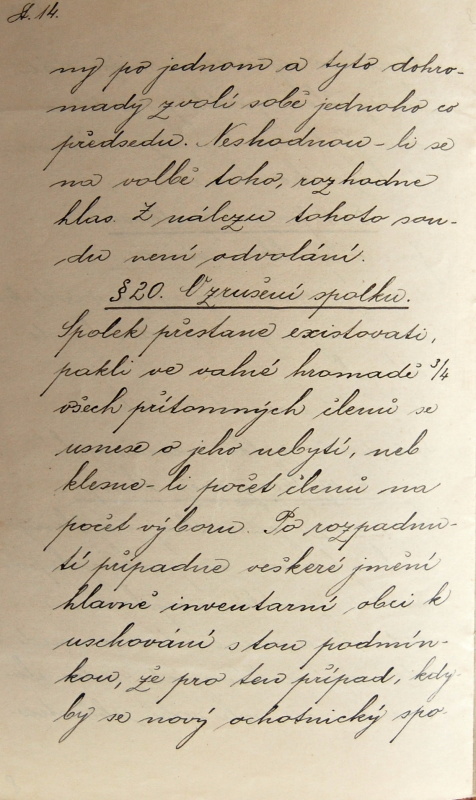 A. 14.
ny po jednom a tyto dohro-
mady zvolí sobě jednoho co
předsedu. Neshodnou-li se
na volbě toho, rozhodne
hlas. Z nálezu tohoto sou-
du není odvolání.
§ 20. Vzrušení spolku.
Spolek přestane existovati,
pakli ve valné hromadě 3/4
všech přítomných členů se
usnese o jeho nebytí, neb
klesne-li počet členů na
počet výboru. Po rozpadnu-
tí připadne veškeré jmění
hlavně inventarní obci k
uschování s tou podmín-
kou, že pro ten případ, kdy-
by se nový ochotnický spo-